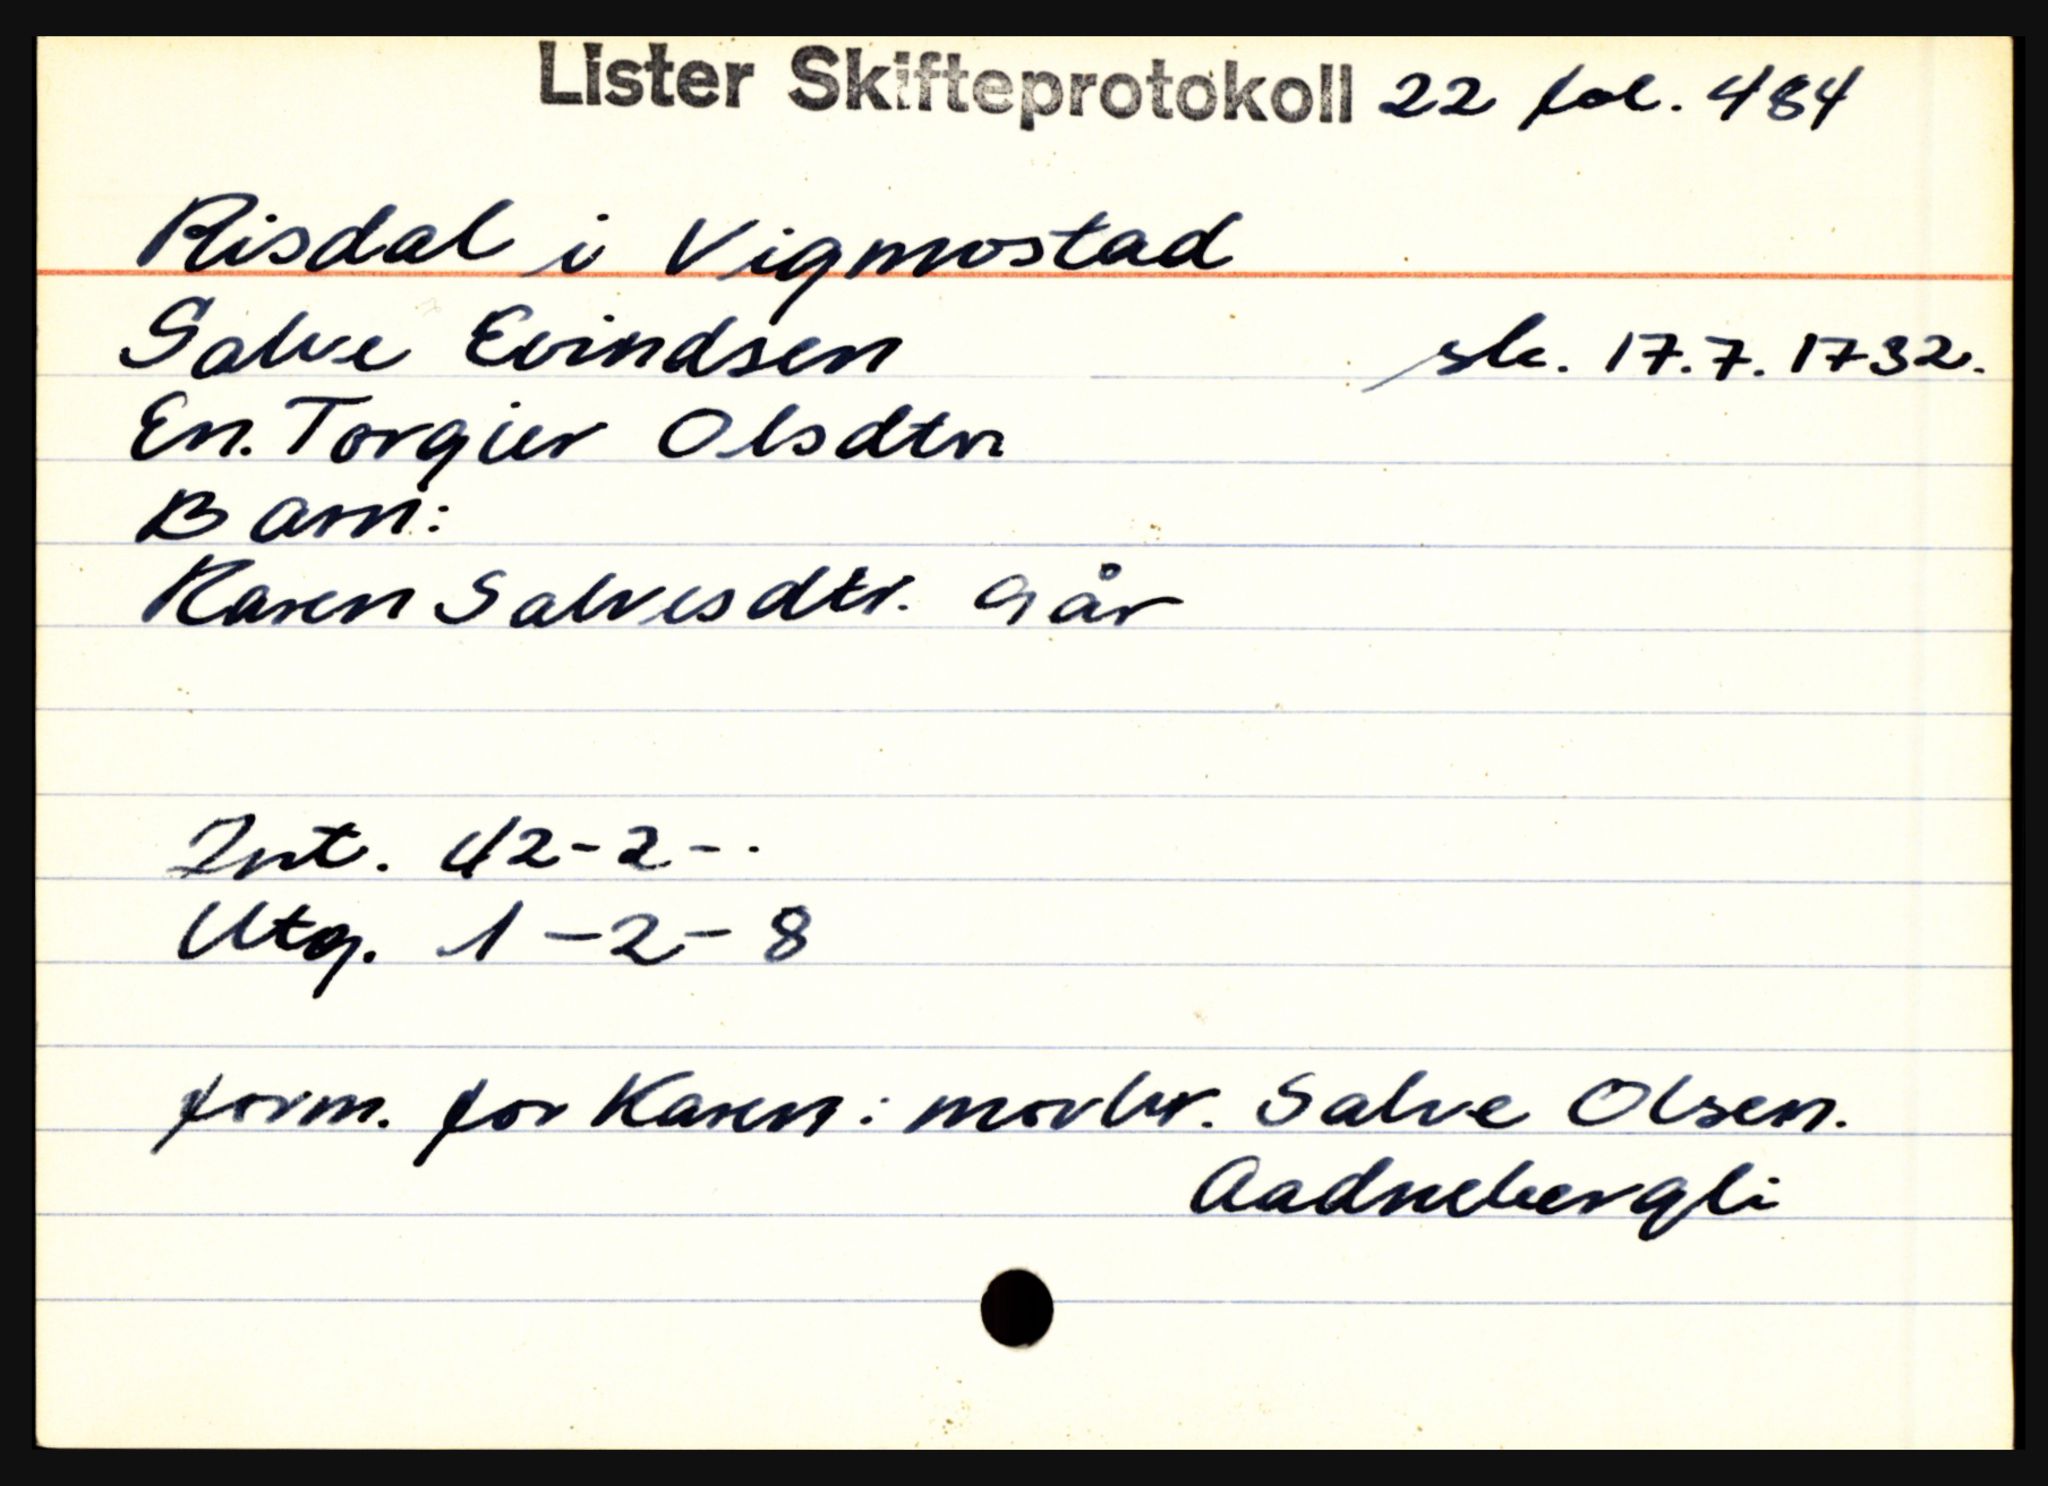 Lister Skifteprotokoll 22 fol. 484
Risdal i Vigmostad
Salve Evindsen sk. 17.7.1732.
En. Torgier Olsdtr
Barn:
Karen Salvesdtr. 9 år
Int. 42-2-.
Utg. 1-2-8
form. for Karen: morbr. Salve Olsen.
Aadnebergli